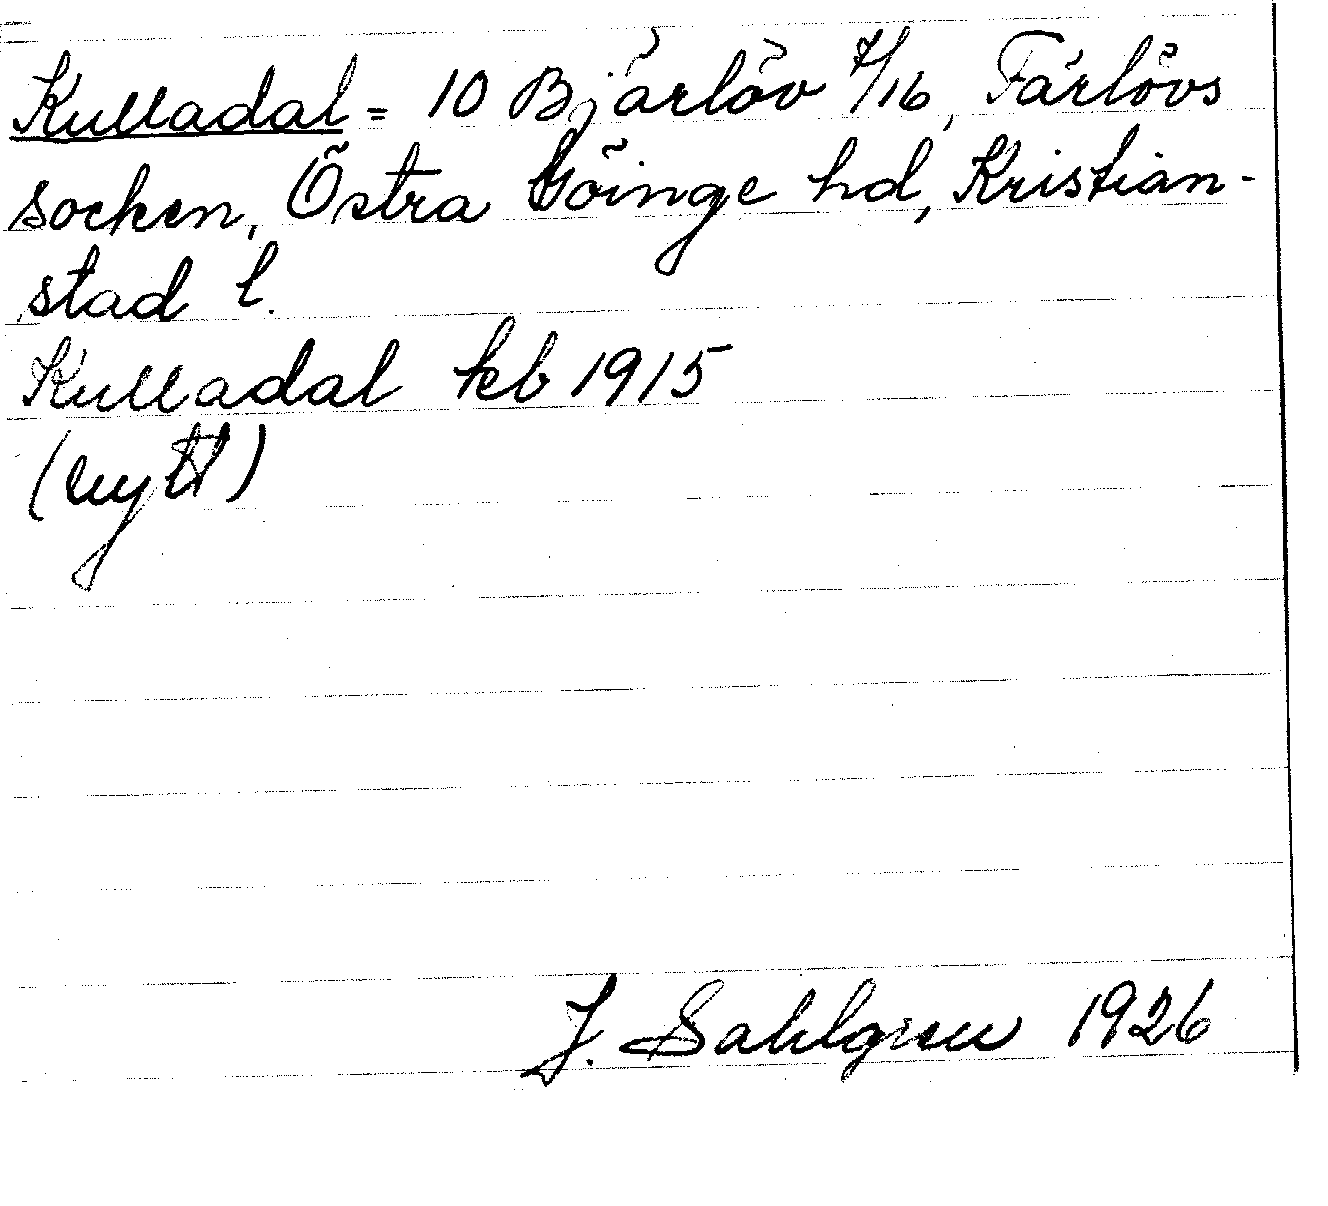 Kulladal = 10 Bjärlöv 7/16, Färlövs
socken, Östra Göinge hd, Kristian-
stad l.
Kulladal kb 1915
(nytt)
J. Sahlgren 1926